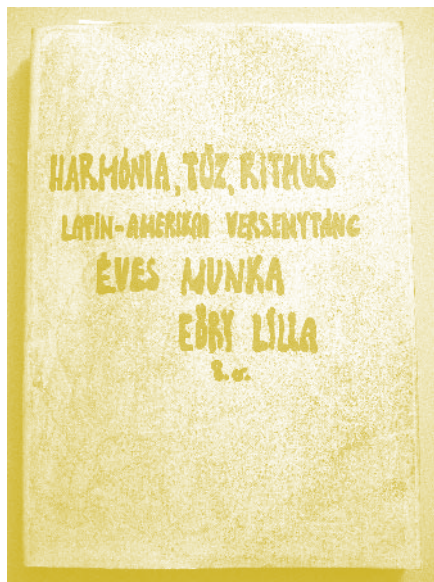 HARMÓNIA, TŰZ, RITMUS
LATIN-AMERIKAI VERSENYTÁNC
ÉVES MUNKA
EŐRY LILLA
8. o.